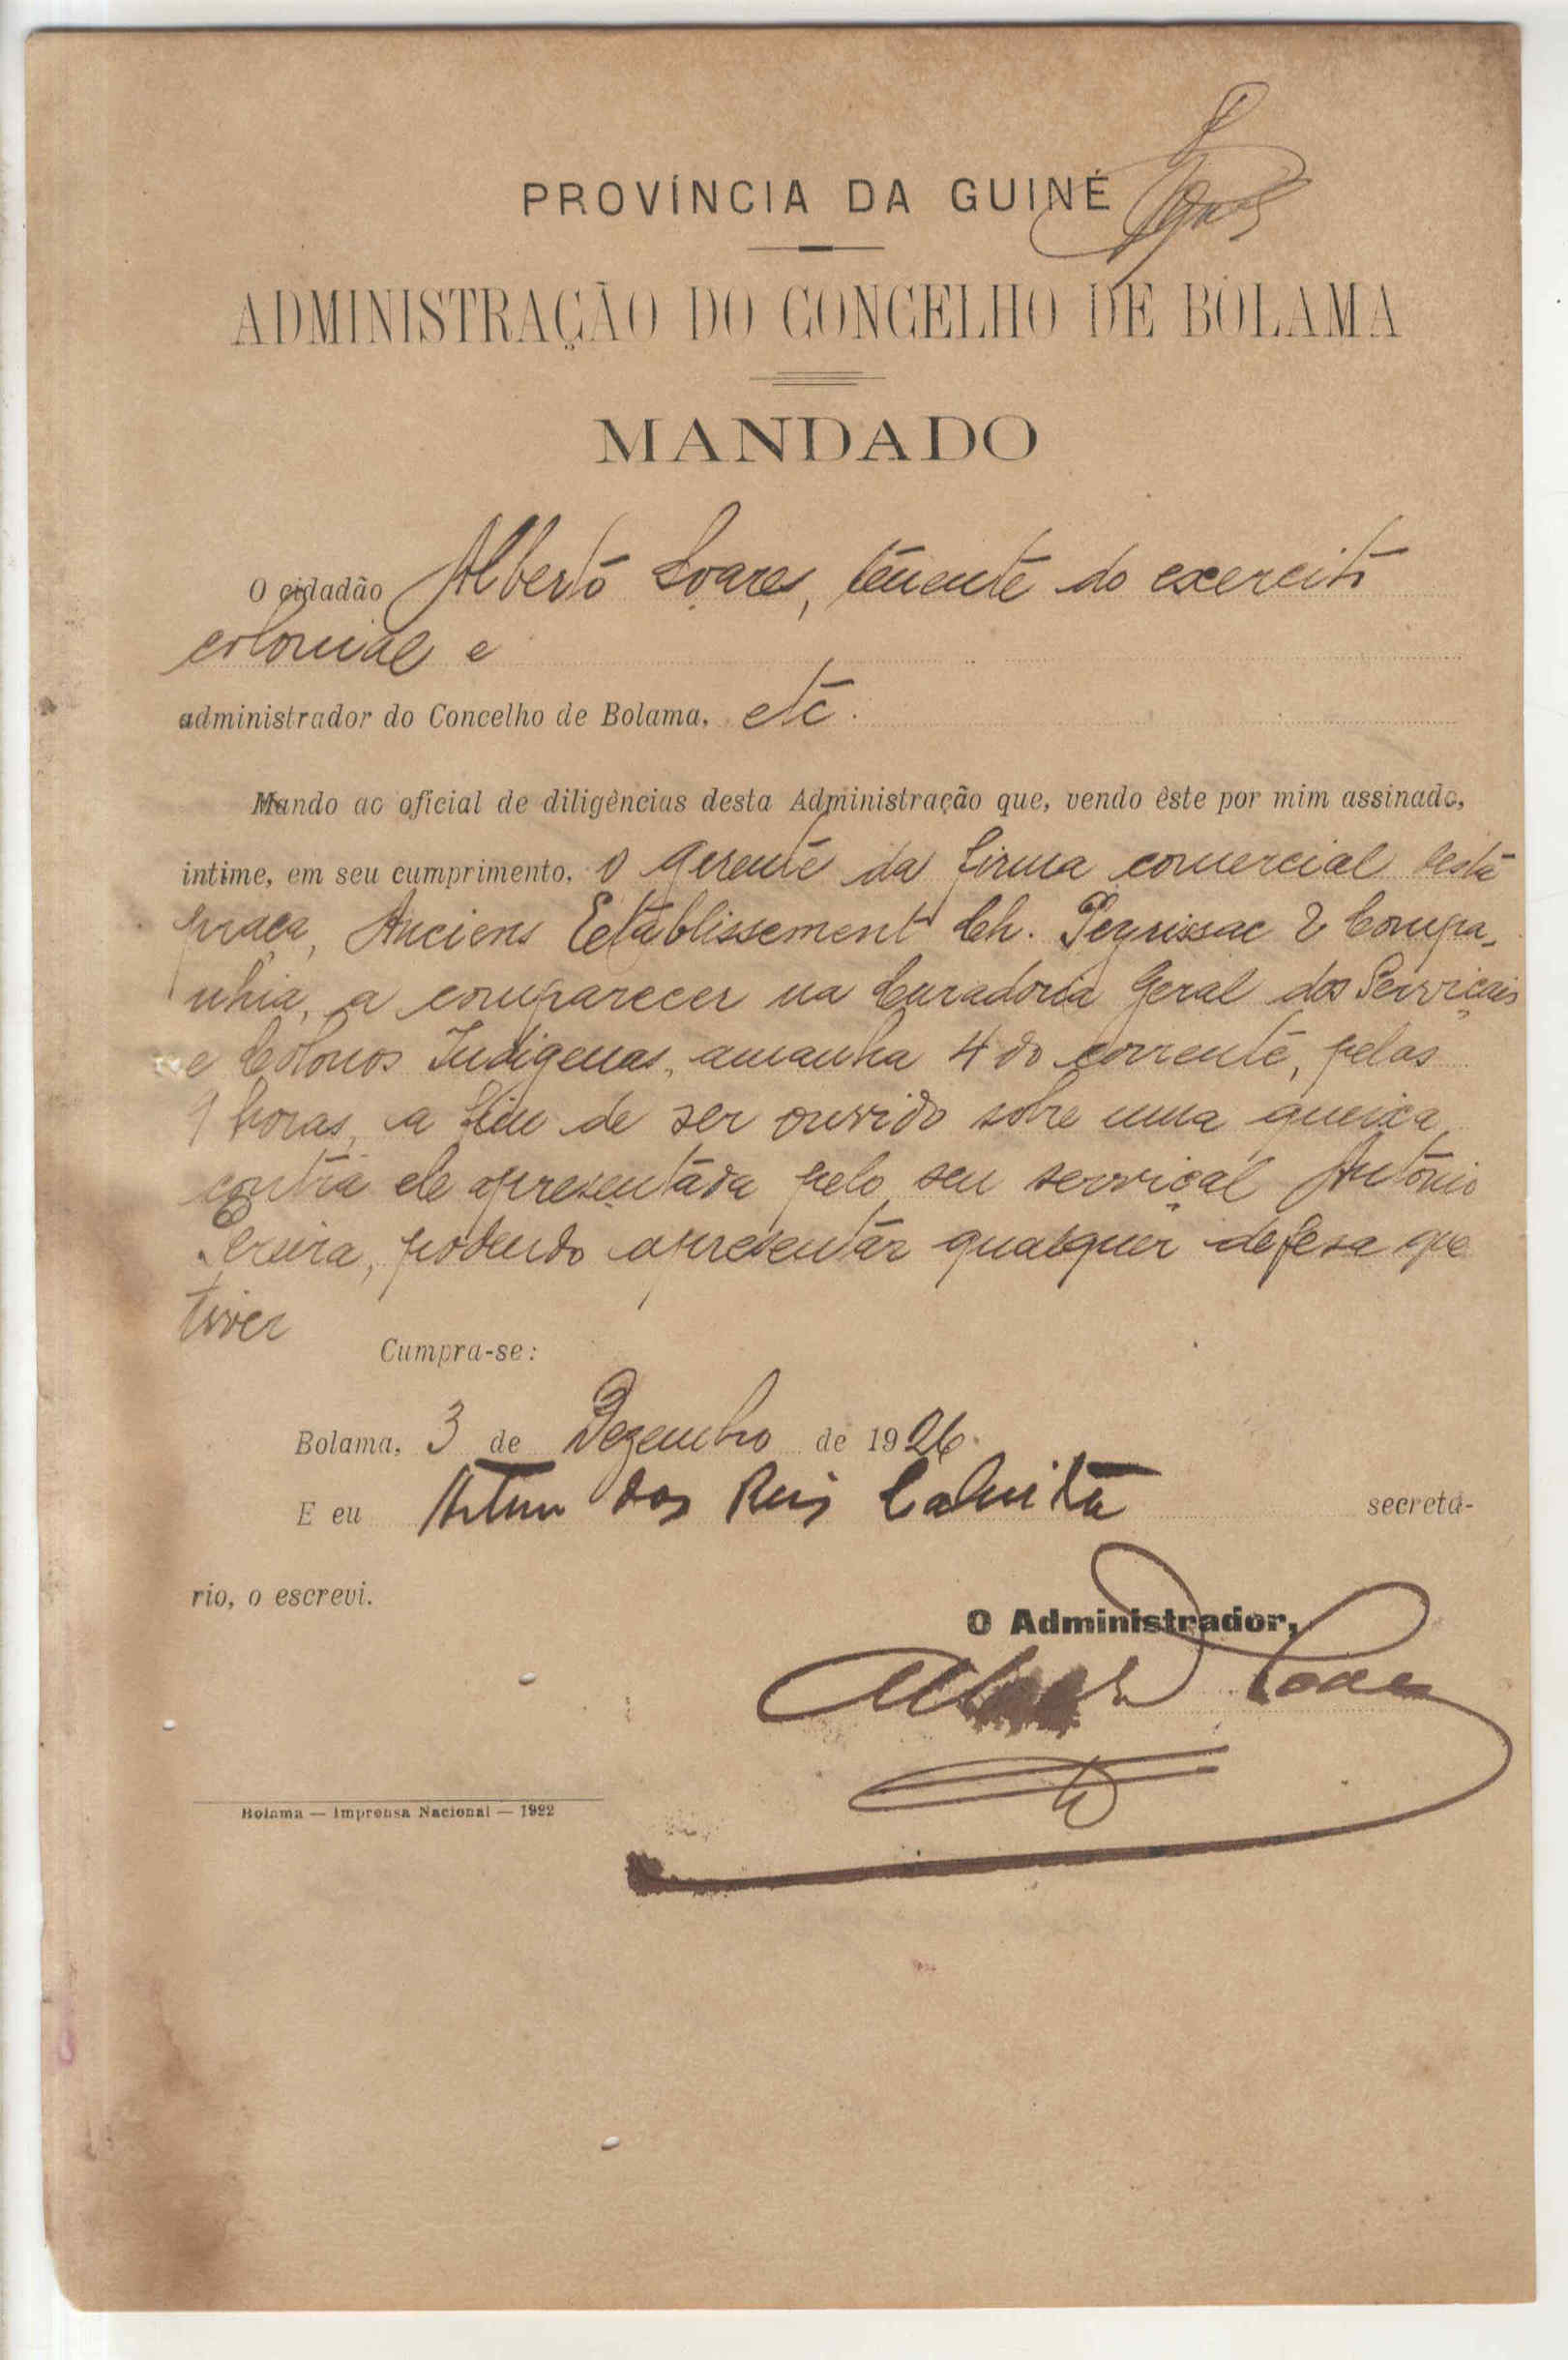 PROVÍNCIA DA GUINÉ
ADMINISTRAÇÃO DO CONCELHO DE BOLAMA
MANDADO
O cidadão Alberto Soares, tenente do exercito
colonial e
administrador do Concelho de Bolama, etc.
Mando ao oficial de diligências desta Administração que, vendo êste por mim assinado,
intime, em seu cumprimento, o gerente da firma comercial desta
praça, Anciens Etablissement Ch. Peyrissac & Compa-
nhia, a comparecer na Curadoria Geral dos Serviçais
e Colonos Indigenas, amanha 4 do corrente, pelas
9 horas, a fim de ser ouvido sobre uma queixa
contra ele apresentada pelo seu serviçal António
Pereira, podendo apresentar qualquer defesa que
tiver
Cumpra-se:
Bolama, 3 de Dezembro de 1926.
E eu Artur dos Reis secretá-
rio, o escrevi.
O Administrador,
Alberto Soares
Bolama — Imprensa Nacional — 1922